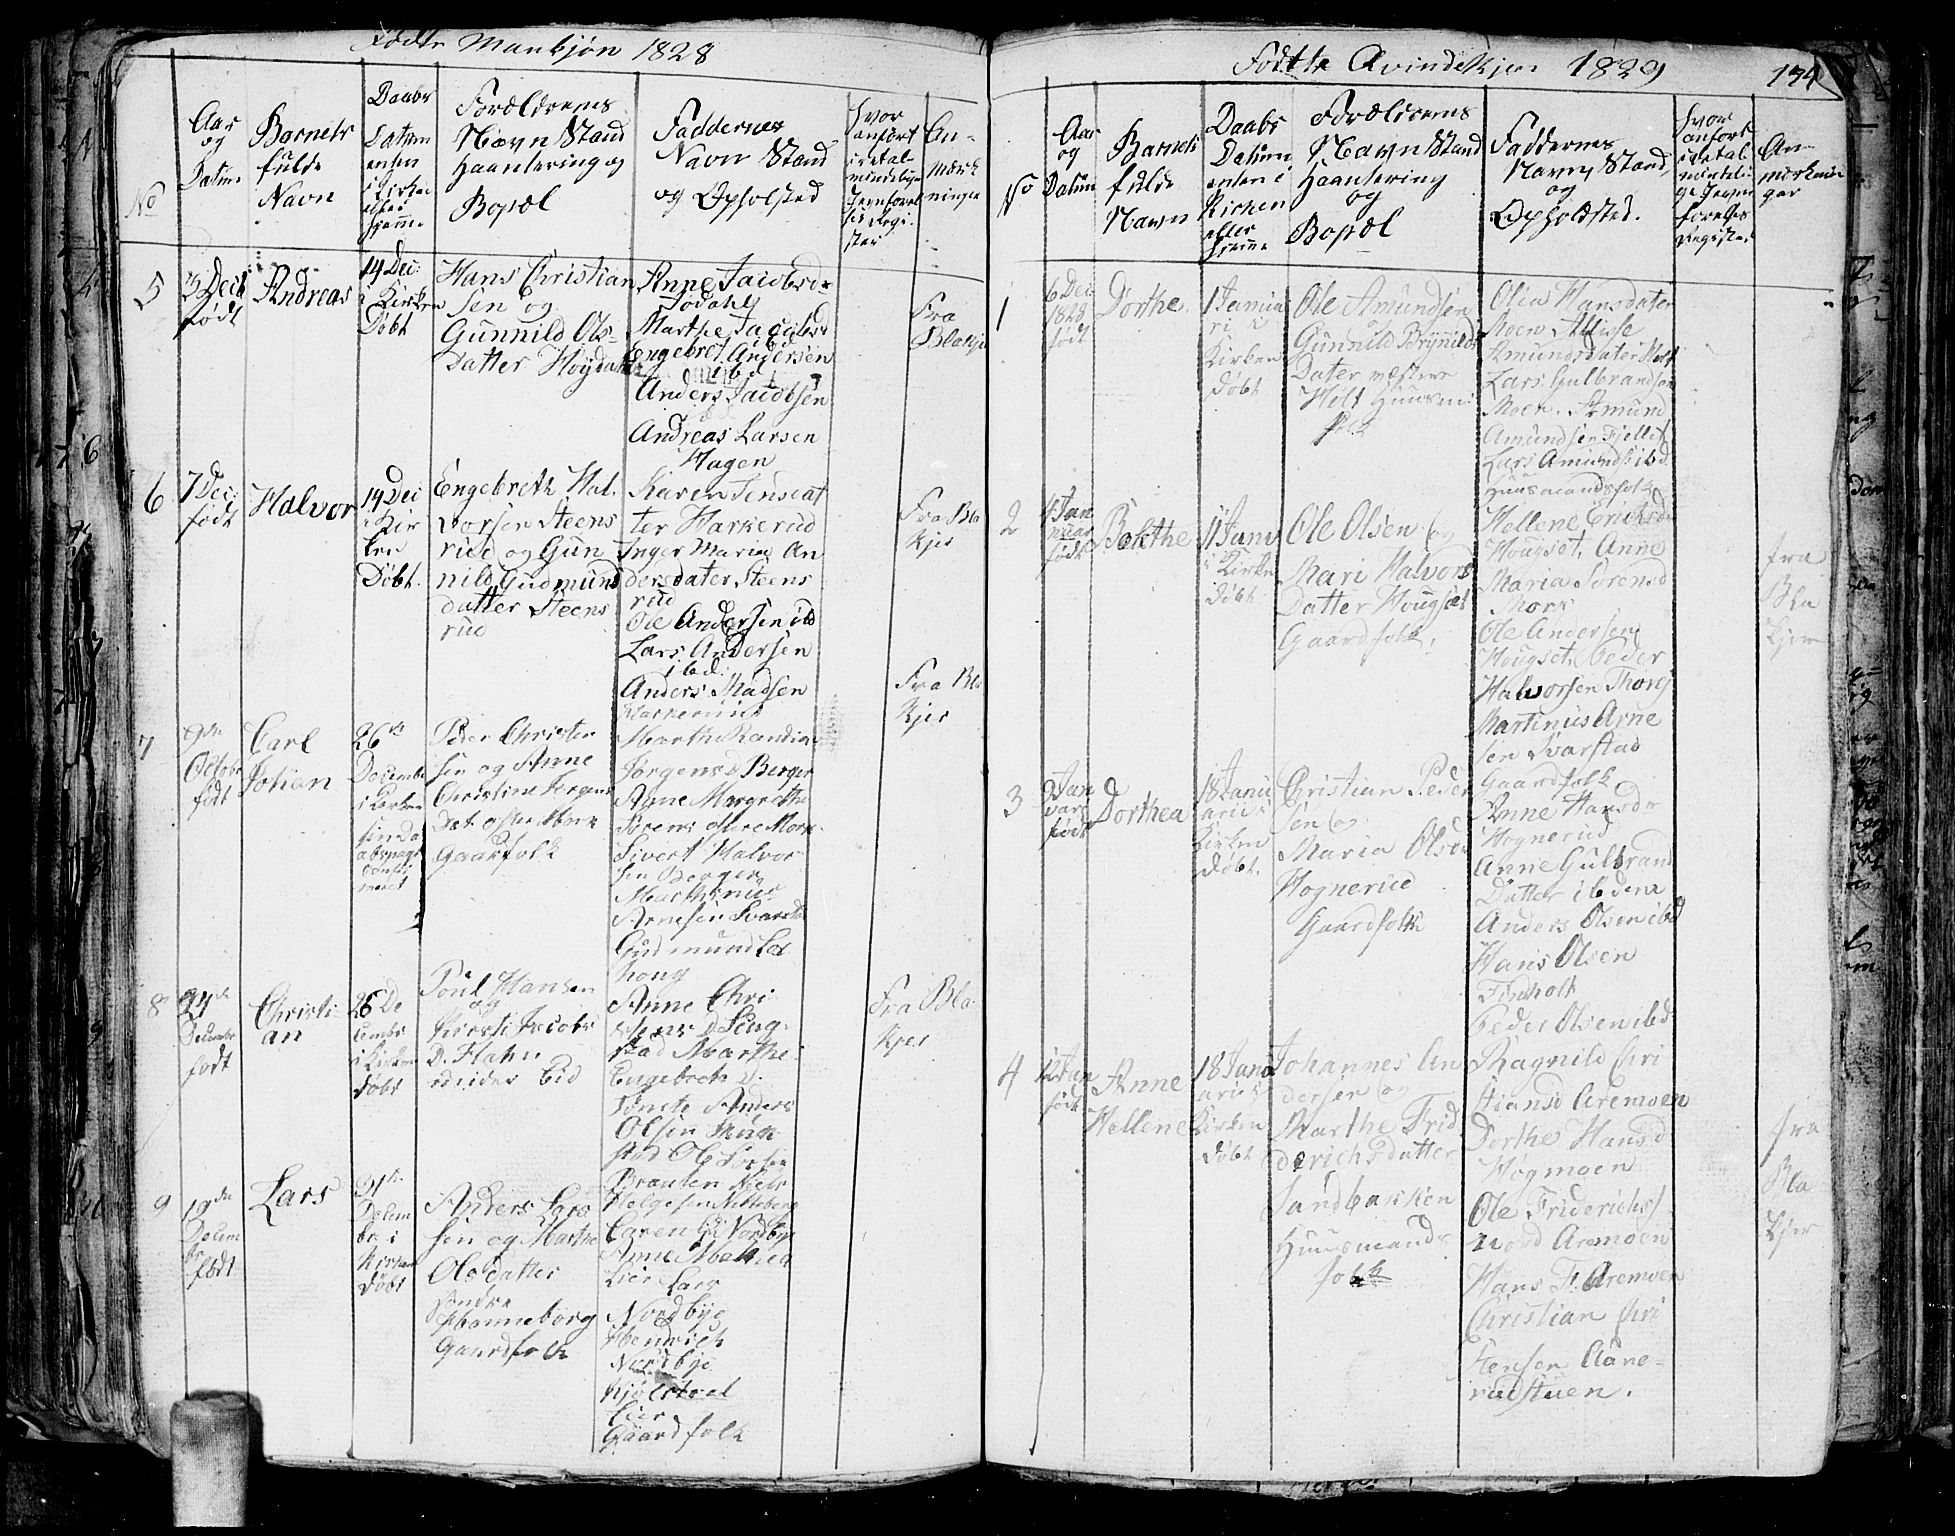 Födte Mankjön 1828
No
Aar
og
Datum
Barnets
fulde
Navn
Daabs
Datum
enten
i Kirken
eller
hjemme
Forældrenes
Navn Stand
Haantering og
Bopæl
Faddernes
Navn Stand
og Opholsted
hvor
anfort
i det al
mindelige
Jevnforel
ses Regi
ster
An-
mærk
ninger
5
født
Andreas
14 Dec:
i Kirken
Döbt
Hans Christian
sen og
Gunnild Ols-
Datter Höyda
Anne Jacobsd
Marthe Jacobsd
Engebret Andersen
ibd
Anders Jacobsen
Andreas Larsen
Hagen
Fra
Blakjer
6
7 Dec:
födt
Halvor
14 Dec
i Kir
ken
Döbt.
Engebreth Hal
vorsen Steens
rud og Gun
nild Gudmund
datter Steens
rud
Karen Jensdat
ter Harkerud
Inger Maria An
dersdater Steens
rud
Ole Andersen ibd
Lars Andersen
ibd:
Anders Madsen
Harkerud
Fra Bla
kjer
7
October
födt
Carl
Johan
26de
December
i Kirken
Peder Christen
sen og Anne
Christine Jörgens
Dat
Gaarfolk
Marthe Randia
Jörgens d Berger
Anne Margrethe
Sörens
Sivert Halvor
sen Berger
Marthinus
Arnesen Svarsta
Gudmund
houg
Fra Bla
kjer
8
24de
December
födt
Christi
an
26 De
cember
i Kirken
döbt
Poul Hansen
og
Kirsti Jacobs
D. Flahn
Eid
Anne Chri
stens D
stad Marthe
Engebreth D.
Tönste Anders
Olsen
stad Ole
Braaten Niels
Helgesen
Fra Bla
kjer
9
19de
Decem
ber
födt
Lars
Decem
ber i
Kirken
döbt
Anders Lars
sen og Marthe
Ols datter
söndre
Hanneborg
Gaardfolk
Caren Nordbye
Anne
Lier Lars
Nordbye
Hendrich
Nordbye
Lier
Gaardfolk
Födte Qvindekjen 1829 134
No
Aar
og
Datum
Barnets
fulde
Navn
Daabs
Datum
enten i
Kirken
eller
hjemme
Forældrenes
Navn Stand
Haantering
og
Bopæl
Faddernes
Navn, Stand
og
Opholdsted.
hvor
anfort
i det al
mindeli
ge Jevn
forelses
Register
An-
mærknin
ger
1
6 Dec
1828
födt
Dorthe
1 Janua
ri i
Kirken
döbt
Ole Amundsen
Gunnild Brynilds
Dater
Holt Huusm
folk
Olia Hansdater
Moen
Amundsdater Holt
Lars Gulbrandsen
Moen. Amund
Amundsen Fjeller
Lars Amunds ibd
Huusmandsfolk
2
4 Jan
nuar
födt
Bolethe
11 Janu
i Kirken
döbt
Ole Olsen og
Mari Halvors
Datter Hougset
Gaardfolk,
Hellene Ericksd
Hougset, Anne
Maria Sörensd
Thorg
Ole Andersen
Hougset, Peder
Halvorsen Thorg
Martinus Arne
sen Svarstad
Gaardfolk
fra
Bla
kjer
3
Jan
uari
födt
Dorthea
18 Janu
arii i
Kirken
döbt.
Christian Peder
sen og
Maria Olsd
Hognerud
Gaardfolk
Anne Hansdr
Hognerud
Anne Gulbrand
Datter ibdem
Anders Olsen ibd
Hans Olsen
Finholt
Peder Olsen ibd
4
12 Jan
födt
Anne
Hellene
18 Janu
arii i
Kirken
döbt
Johannes An
dersen og
Marthe Frid
derichsdatter
Sandbakken
Huusmands
folk
Ragnild Chri
stiansd Aremoen
Dorthe Hansd
Högmoen
Ole Friderichs
Nord Aremoen
Hans F. Aremoen
Christian Chri
stensen Aane-
rudstuen.
fra
Bla
kjer